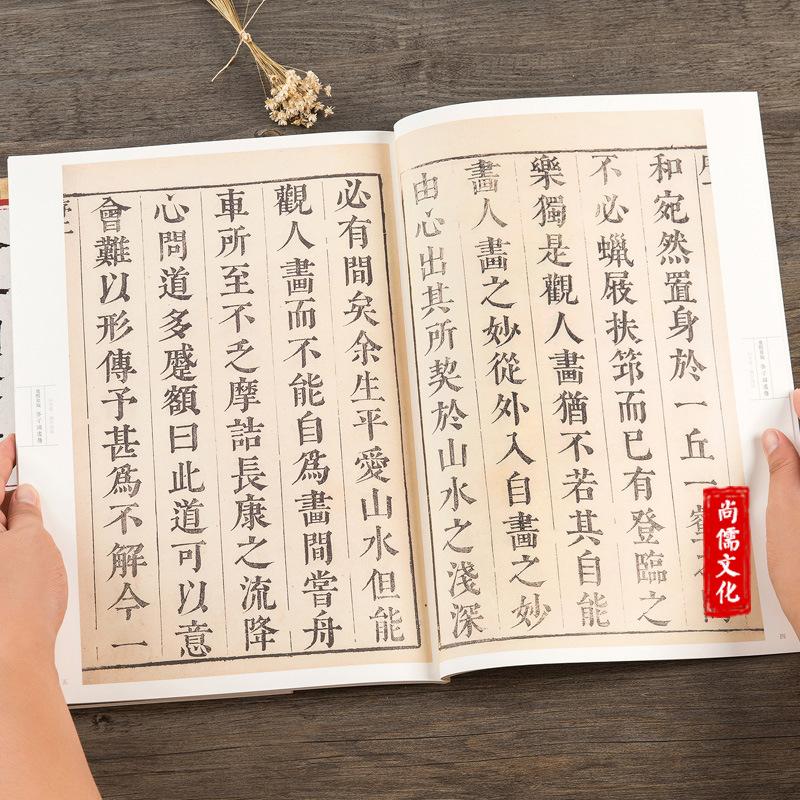 和宛然置身於一丘一壑
不必蠟屐扶筇而已有登臨之
樂獨是觀人畫猶不若其自能
畫人畫之妙從外入自畫之妙
由心出其所契於山水之淺深
必有間矣余生平愛山水但能
觀人畫而不能自爲畫間嘗舟
車所至不乏摩詰長康之流降
心問道多蹙額曰此道可以意
會難以形傳予甚爲不解今一
芥子園畫傳
芥子園畫傳
四
五
尚儒文化